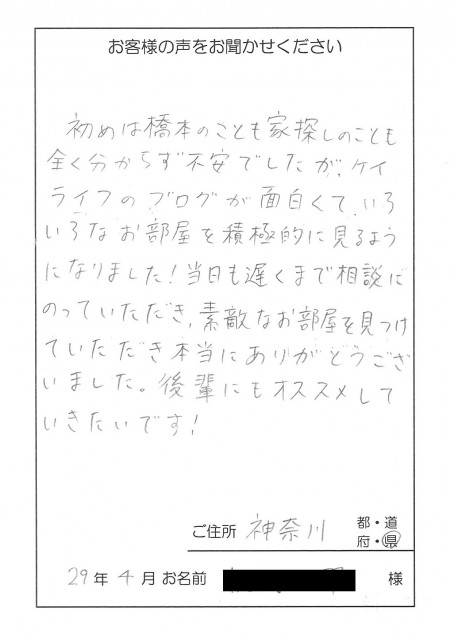 お客様の声をお聞かせください
初めは橋本のことも家探しのことも
全く分からず不安でしたが、ケイ
ライフのブログが面白くて、いろ
いろなお部屋を積極的に見るよう
になりました!当日も遅くまで相談に
のっていただき、素敵なお部屋を見つけ
ていただき本当にありがとうござ
いました。後輩にもオススメして
いきたいです!
ご住所 神奈川 都・道
府・県
29年4月 お名前 様